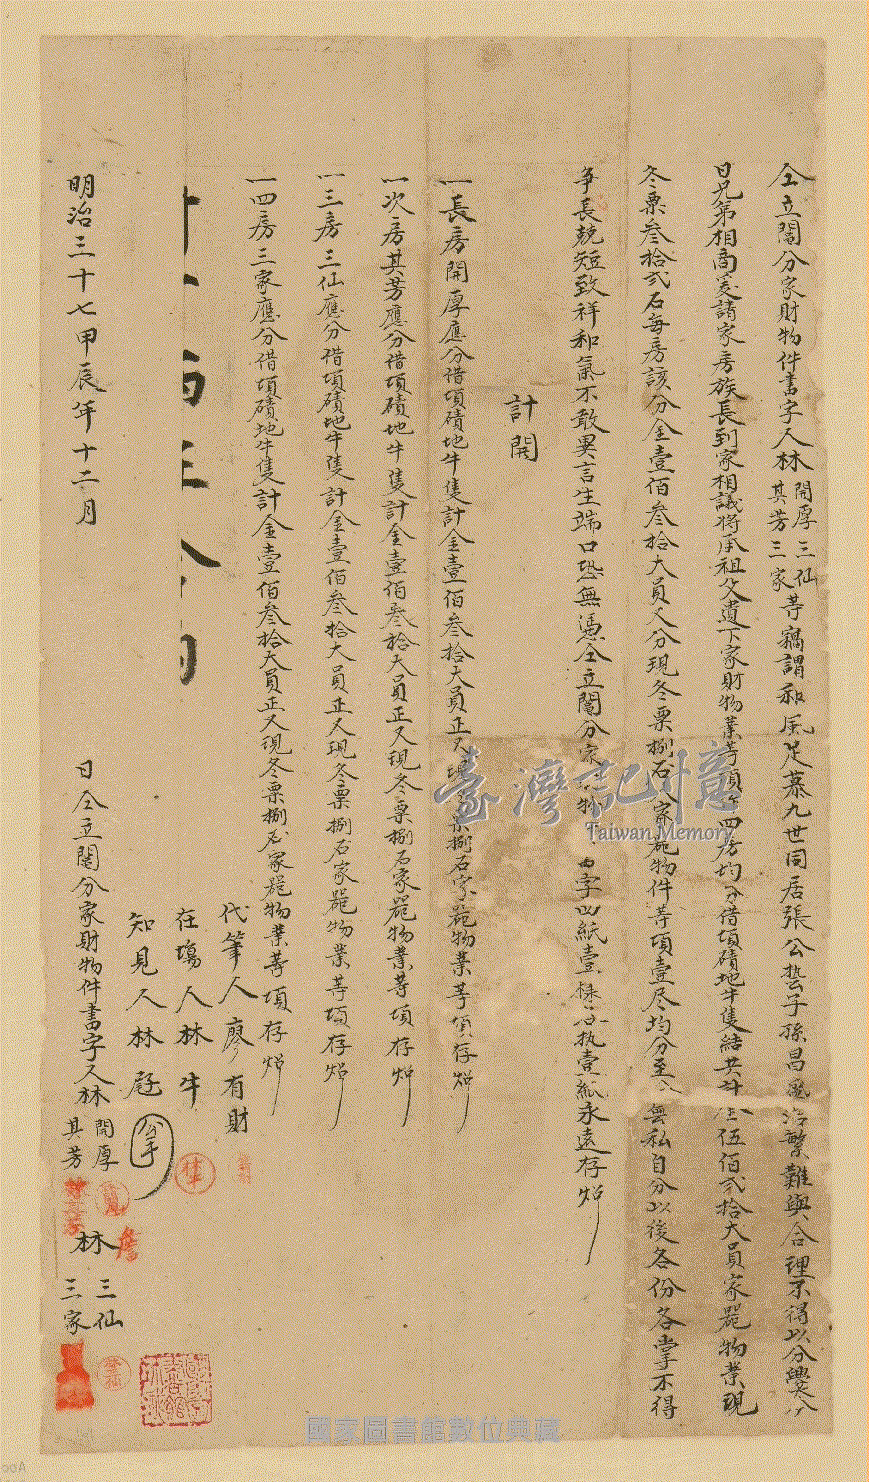 仝立鬮分家財物件書字人林開厚三仙其芳三家等竊謂和風足慕九世同居張公藝子孫昌盛浩繁難與合理不得以分爨今
日兄弟相商爰請家房族長到家相議將承祖父遺下家財物業等項作四房均分借項磧地牛隻結共計金伍佰弍拾大員家器物業現
冬粟叁拾弍石每房該分金壹佰叁拾大員又分現冬粟捌石家器物件等項壹尽均分至公無私自分以後各份各掌不得
争長競短致祥和氣不敢異言生端口恐無憑仝立鬮分家物字四紙壹樣各执壹紙永遠存炤
計開
一長房開厚應分借項磧地牛隻計金壹佰叁拾大員正又現粟捌石家器物業等項存炤
一次房其芳應分借項磧地牛隻計金壹佰叁拾大員正又現冬粟捌石家器物業等項存炤
一三房三仙應分借項磧地牛隻計金壹佰叁拾大員正又現冬粟捌石家器物業等項存炤
一四房三家應分借項磧地牛隻計金壹佰叁拾大員正又現冬粟捌石家器物業等項存炤
代筆人廖有財
在塲人林牛
知見人林
明治三十七甲辰年十二月 日仝立鬮分家財物件書字人林開厚其芳 林三仙三家
臺灣記憶
Taiwan Memory
國家圖書館數位典藏